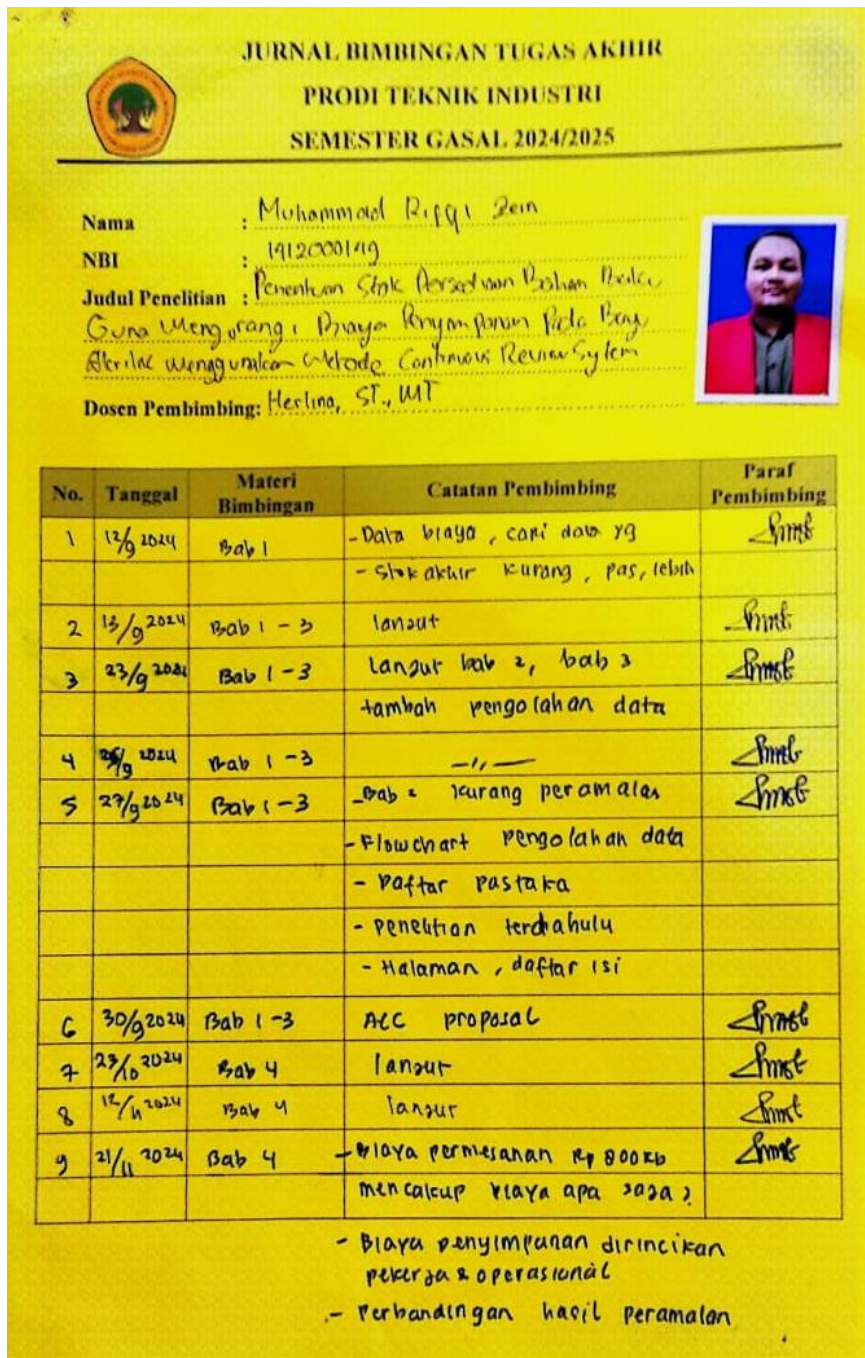 JURNAL BIMBINGAN TUGAS AKHIR
PRODI TEKNIK INDUSTRI
SEMESTER GASAL 2024/2025
Nama : Muhammad Rifqi Zein
NBI : 1912000149
Judul Penelitian : Penentuan Stok Persediaan Bahan Baku
Guna Mengurangi Biaya Penyimpanan Pada
Akrilac Menggunakan Metode Continuous Review System
Dosen Pembimbing: Herlina, ST., MT
No. Tanggal Materi Bimbingan Catatan Pembimbing Paraf Pembimbing
1 12/9 2024 Bab 1 - Data biaya, cari data yg
- Stok akhir kurang, pas, lebih
2 13/9 2024 Bab 1 - 3 lanjut
3 23/9 2024 Bab 1 - 3 Lanjut bab 2, bab 3
tambah pengolahan data
4 /9 2024 Bab 1 - 3 -〃-
5 27/9 2024 Bab 1 - 3 - Bab 2 kurang peramalan
- Flowchart pengolahan data
- Daftar pustaka
- penelitian terdahulu
- Halaman, daftar isi
6 30/9 2024 Bab 1 - 3 ACC proposal
7 23/10 2024 Bab 4 lanjut
8 12/11 2024 Bab 4 lanjut
9 21/11 2024 Bab 4 - Biaya permesanan Rp 800
mencakup biaya apa saja?
- Biaya penyimpanan dirincikan
pekerja & operasional
- Perbandingan hasil peramalan